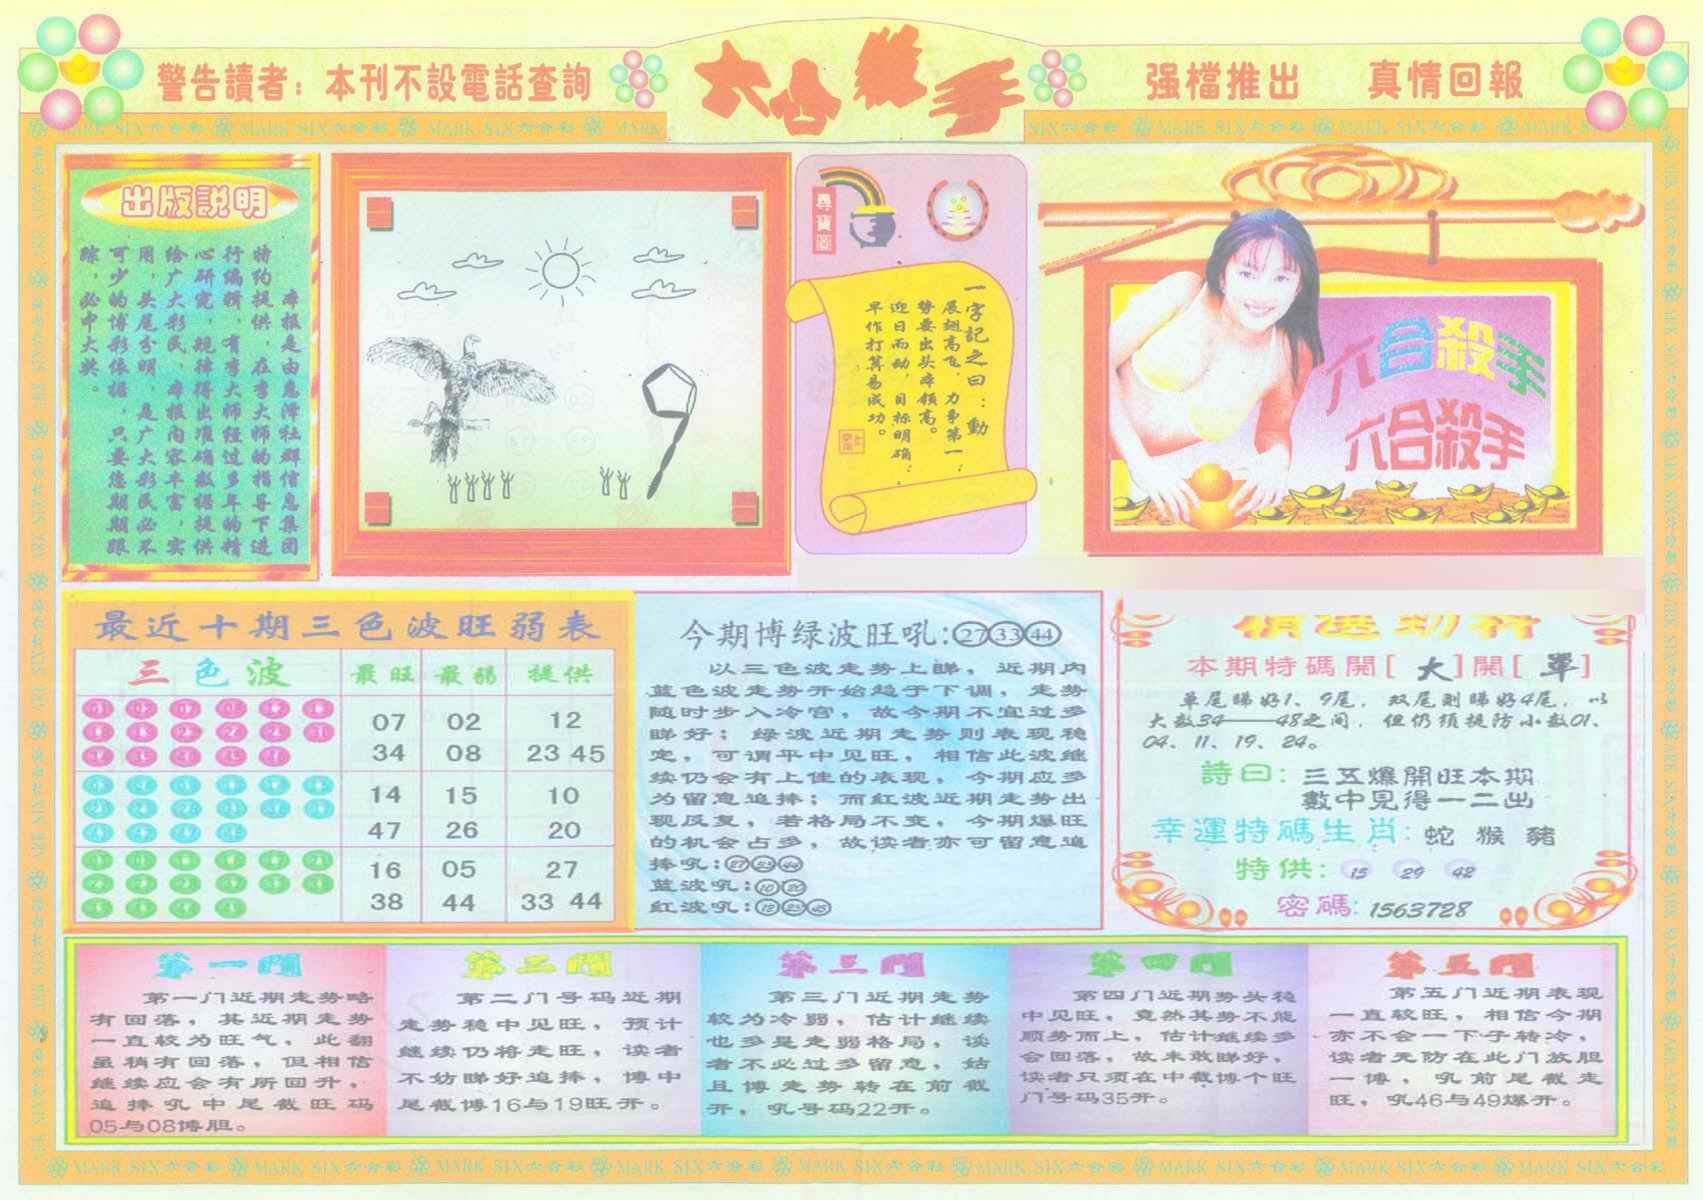 警告讀者：本刊不設電話查詢
六合殺手
强檔推出 真情回報
MARK SIX六合彩
出版説明
本报是由惠泽社群信息集团
特约提供，在李大师的指导下进
行编辑，有李大师经过多年的精
心研究，规律得出准确数据提供
给广大彩民，本报内容丰富，实
用，头尾分明，是广大彩民必不
可少的博彩依据，只要您期期跟
踪，必中大奖。
尋寶圖
一字记之曰：動
展翅高飞，力争第一；
势要出头本领高。
迎日而动，目标明确；
早作打算易成功。
六合殺手
六合殺手
最近十期三色波旺弱表
三色波 最旺 最弱 提供
07 02 12
34 08 23 45
14 15 10
47 26 20
16 05 27
38 44 33 44
今期博绿波旺吼:27 33 44
以三色波走势上睇，近期内
蓝色波走势开始趋于下调，走势
随时步入冷宫，故今期不宜过多
睇好；绿波近期走势则表现稳
定，可谓平中见旺，相信此波继
续仍会有上佳的表现，今期应多
为留意追捧；而红波近期走势出
现反复，若格局不变，今期爆旺
的机会占多，故读者亦可留意追
捧吼:27 33 44
蓝波吼:10 20
紅波吼:12 23 45
本期特碼開[大]開[單]
单尾睇好1、9尾，双尾则睇好4尾，以
大数34——48之间，但仍须提防小数01、
04、11、19、24。
詩曰：三五爆開旺本期
數中見得一二出
幸運特碼生肖：蛇 猴 豬
特供：15 29 42
密碼：1563728
第一門
第一门近期走势略
有回落，其近期走势
一直较为旺气，此翻
虽稍有回落，但相信
继续应会有所回升，
追捧吼中尾截旺码
05与08博胆。
第二門
第二门号码近期
走势稳中见旺，预计
继续仍将走旺，读者
不妨睇好追捧，博中
尾截博16与19旺开。
第三門
第三门近期走势
较为冷弱，估计继续
也多是走弱格局，读
者不必过多留意，姑
且博走势转在前截
开，吼号码22开。
第四門
第四门近期势头稳
中见旺，竟然其势不能
顺势而上，估计继续多
会回落，故未敢睇好，
读者只须在中截博个旺
门号码35开。
第五門
第五门近期表现
一直较旺，相信今期
亦不会一下子转冷，
读者无防在此门放胆
一博，吼前尾截走
旺，吼46与49爆开。
MARK SIX六合彩